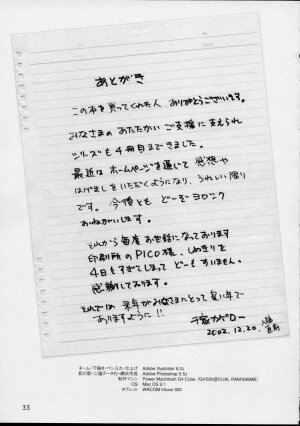 あとがき
この本を買ってくれた人 ありがとうございます。
みなさまの あたたかい ご支援に支えられ
シリーズも 4冊目まできました。
最近は ホームページを通じて 感想や
はげましをいただくようになり、うれしい限り
です。今後とも どーぞ ヨロシク
おねがいします。
それから 毎度 お世話になっております
印刷所の PICO様、しめきりを
4日もすぎてしまって どーもすいません。
感謝しております。
それでは 来年がみなさまにとって 良い年で
ありますように!!
2002.12.20.
ネーム・下描き・ペン入れ・仕上げ Adobe Illustrator 9.0J
肌の影・二値データ化・網点作成 Adobe Photoshop 5.5J
制作マシン Power Macintosh G4 Cube (G4/500@DUAL RAM:896MB)
OS Mac OS 9.1
タブレット WACOM Intuos 920
33